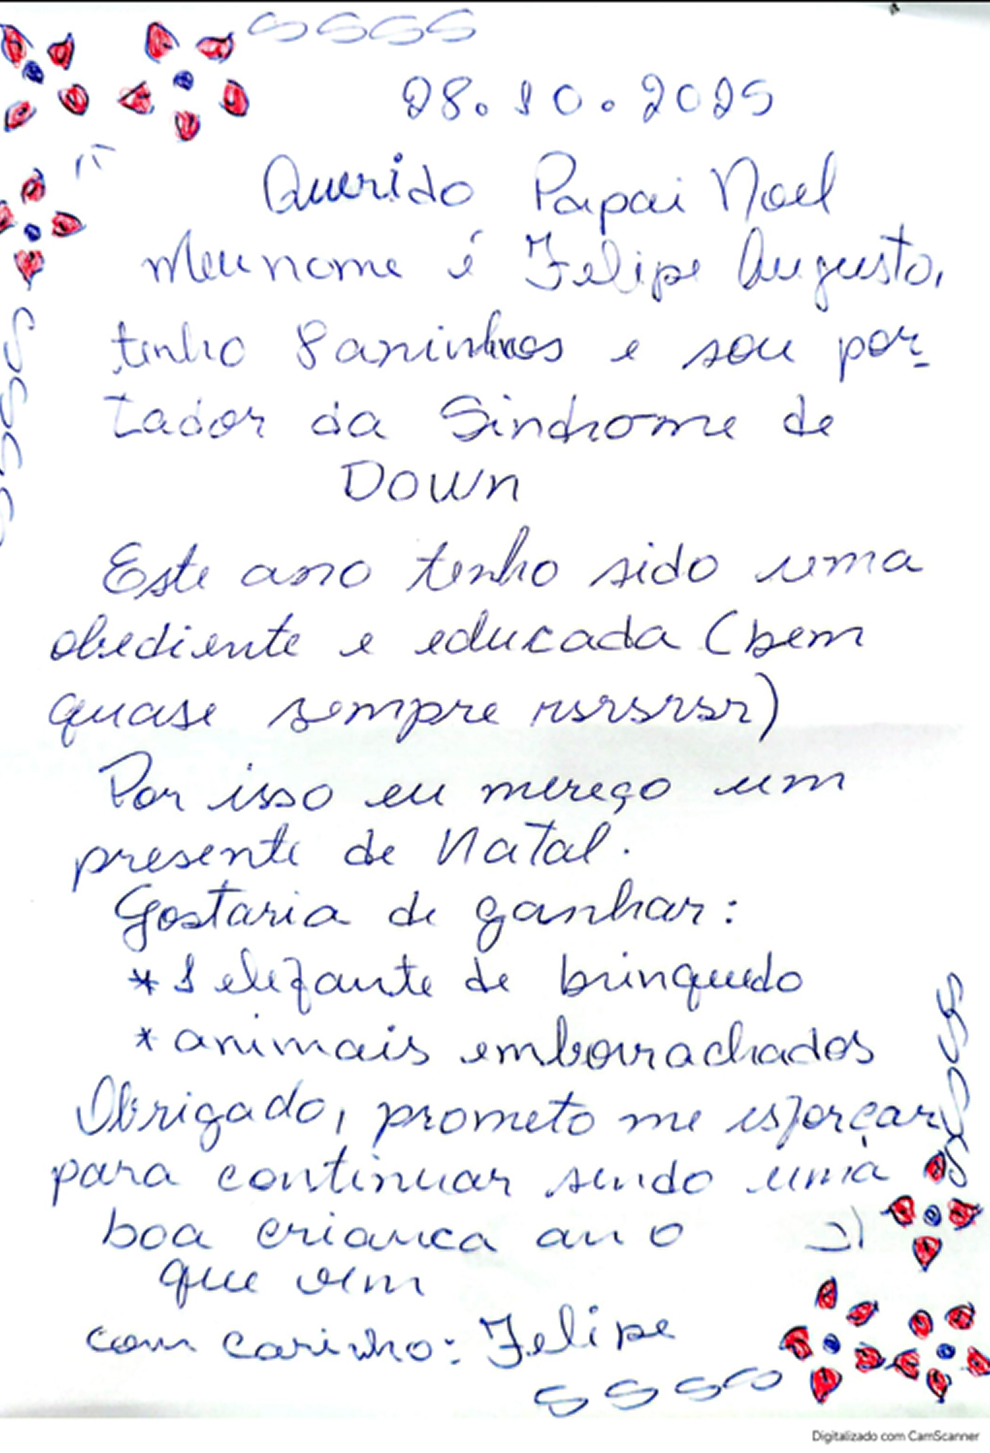 28.10.2025
Querido Papai Noel
Meu nome é Felipe Augusto,
tenho 8 aninhos e sou por-
tador da Sindrome de
Down
Este ano tenho sido uma
obediente e educada (bem
quase sempre rsrsrsr)
Por isso eu mereço um
presente de Natal.
Gostaria de ganhar:
* 1 elefante de brinquedo
* animais emborrachados
Obrigado, prometo me esforçar
para continuar sendo uma
boa criança ano
que vem
com carinho: Felipe
Digitalizado com CamScanner